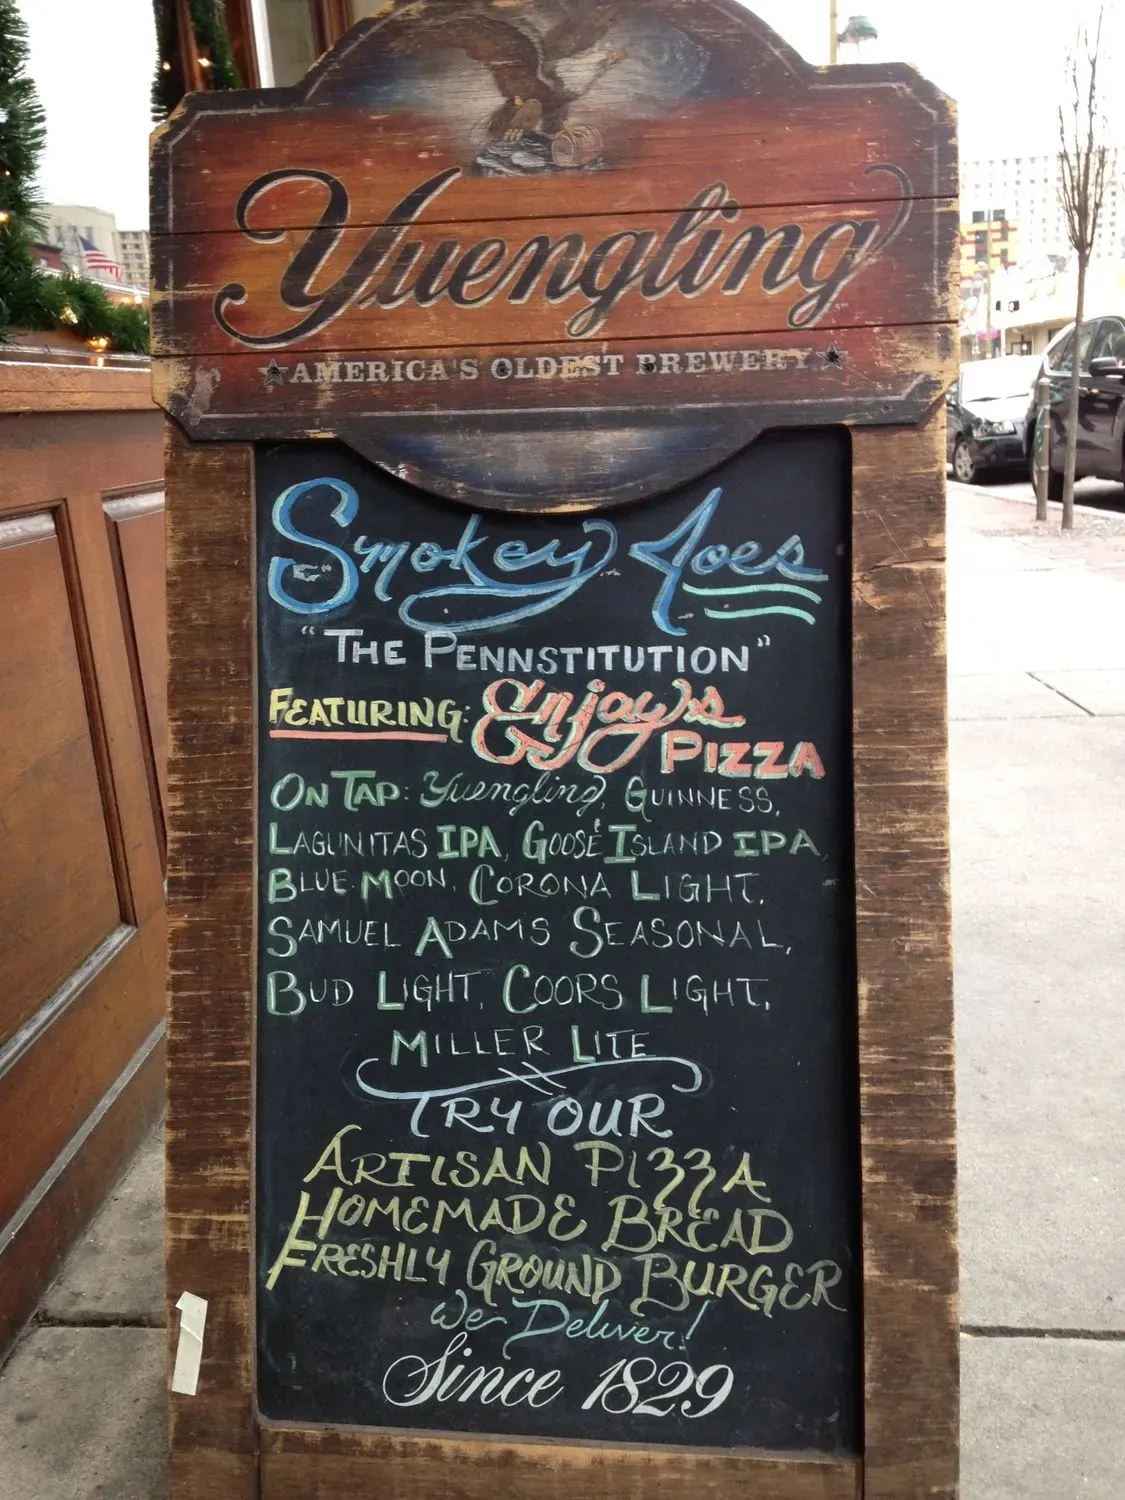 Yuengling
AMERICA'S OLDEST BREWERY
Smokey Joes
"THE PENNSTITUTION"
FEATURING: Enjay's
PIZZA
ON TAP: Yuengling, GUINNESS,
LAGUNITAS IPA, GOOSE ISLAND IPA,
BLUE MOON, CORONA LIGHT,
SAMUEL ADAMS SEASONAL,
BUD LIGHT, COORS LIGHT,
MILLER LITE
TRY OUR
ARTISAN PIZZA
HOMEMADE BREAD
FRESHLY GROUND BURGER
We Deliver!
Since 1829